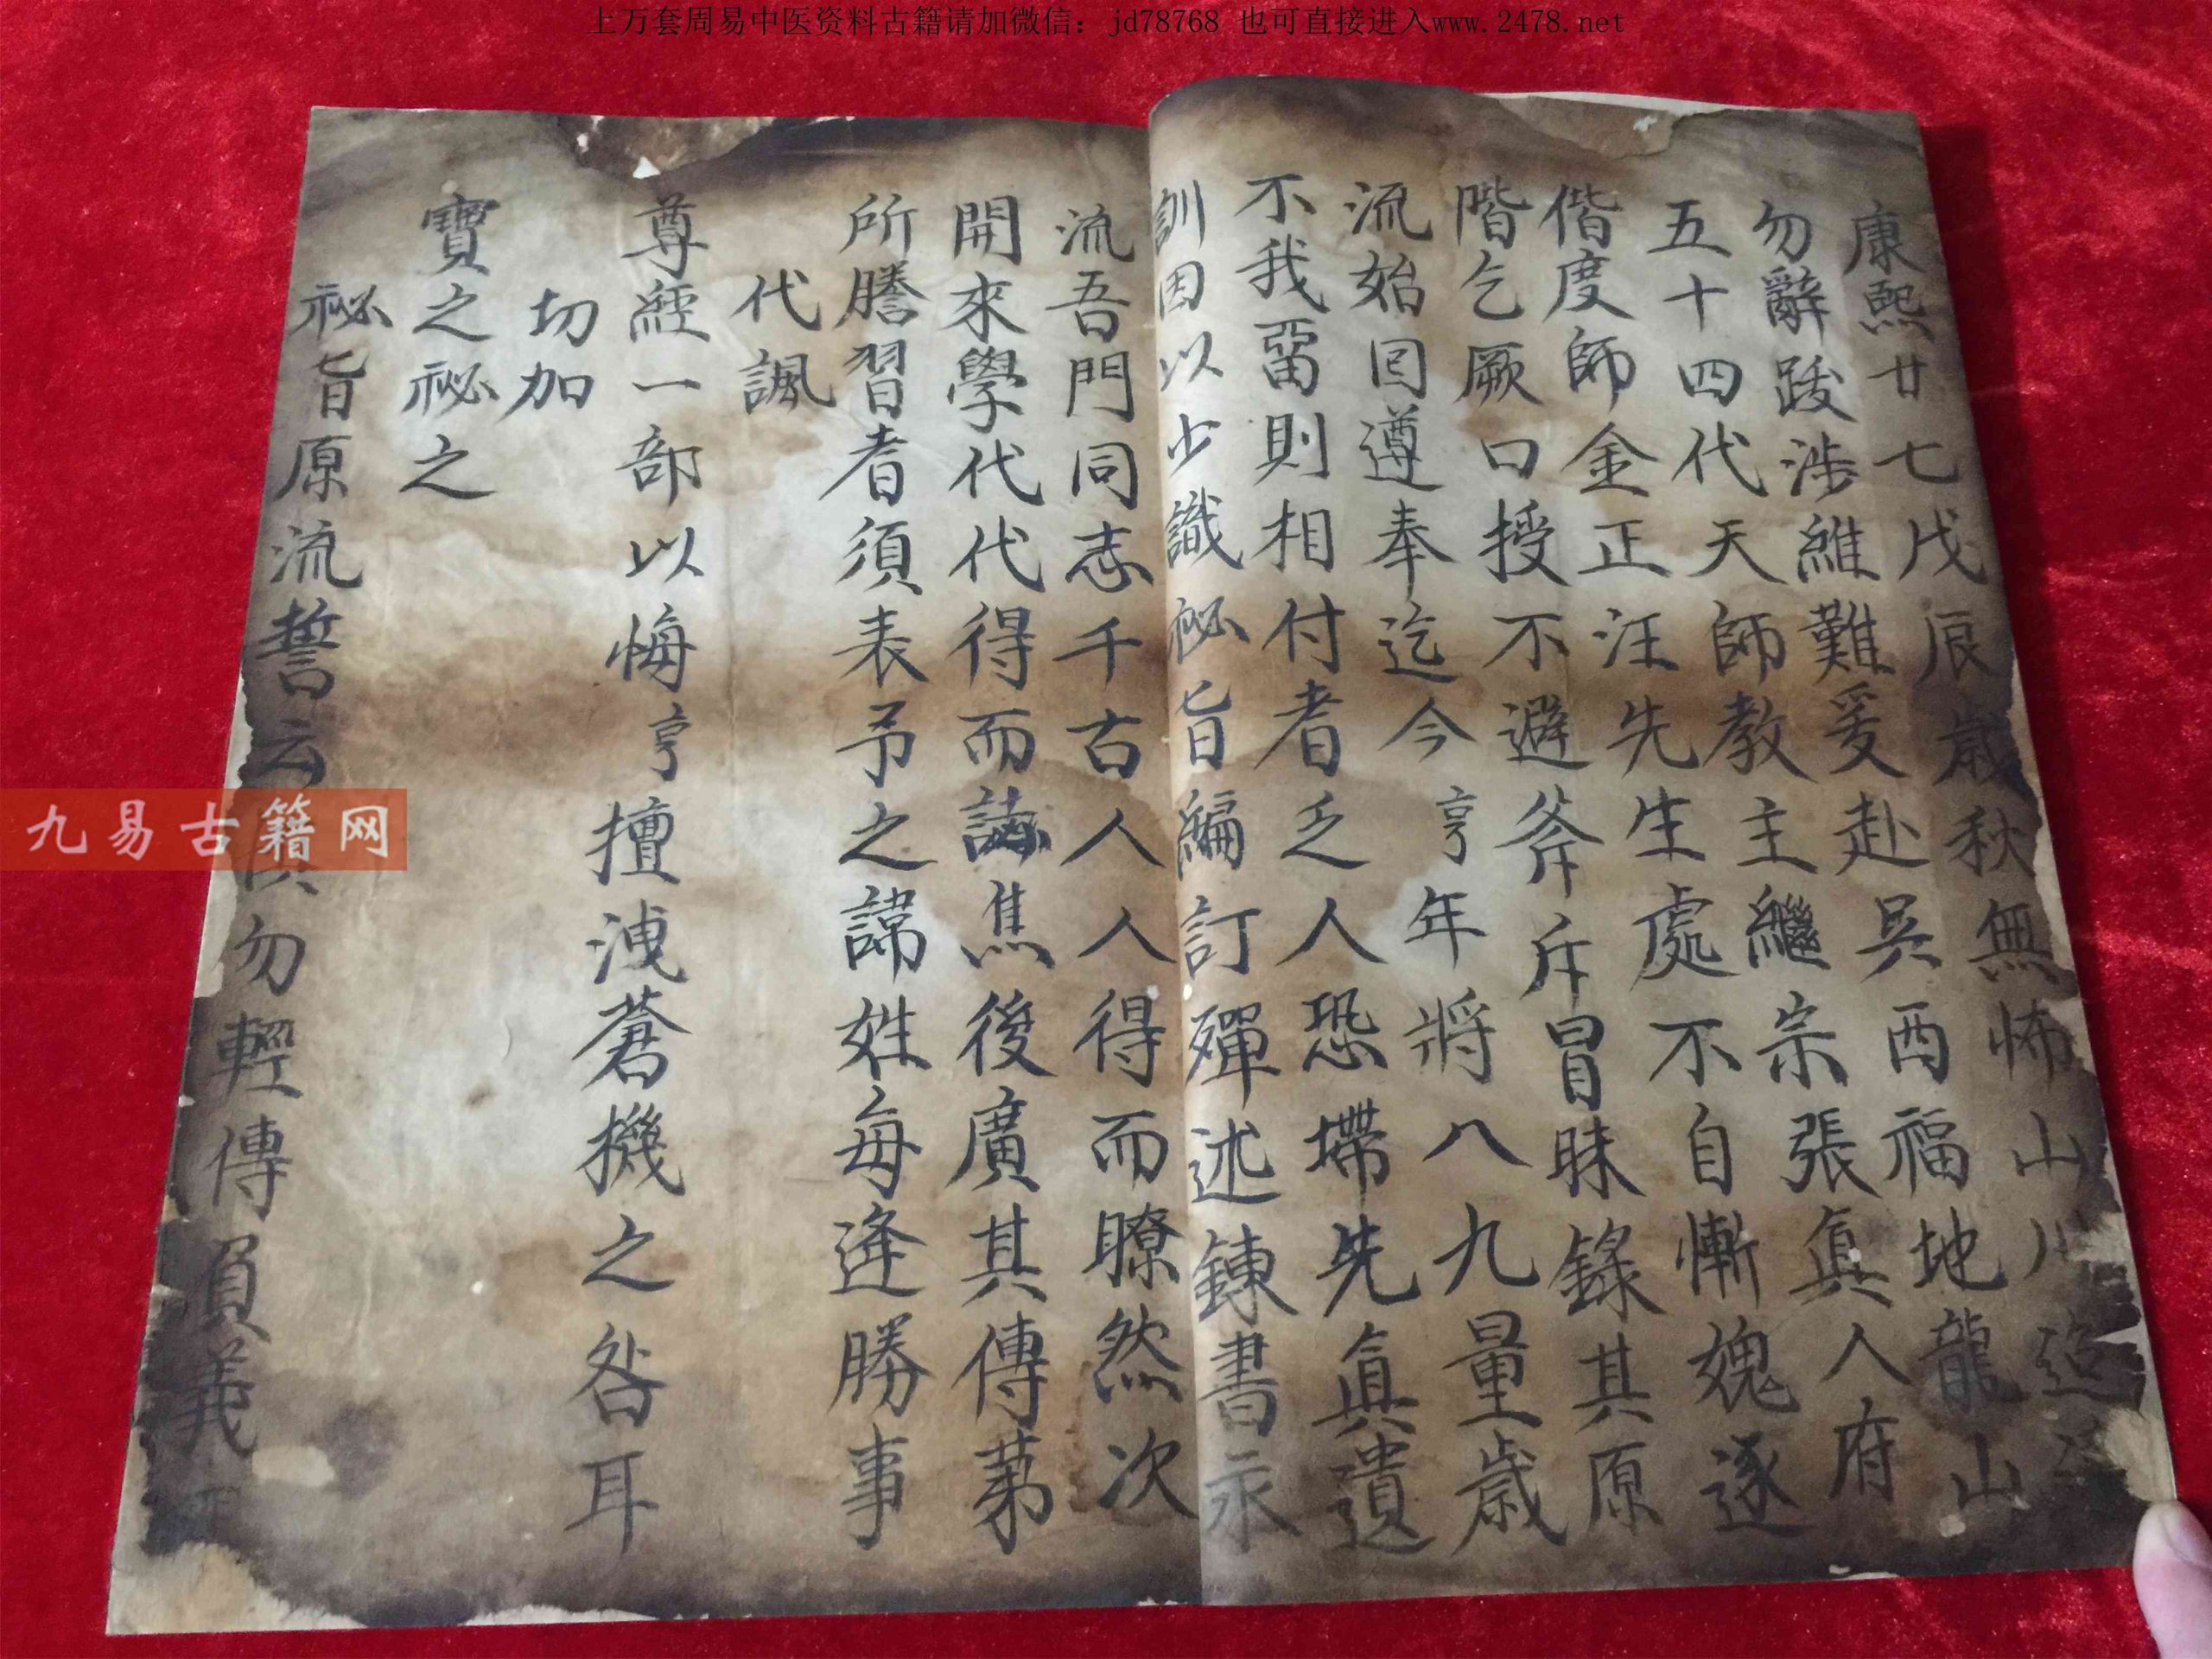 上万套周易中医资料古籍请加微信：jd78768 也可直接进入www.2478.net
康熙廿七戊辰歲秋無怖山川迢
勿辭跋涉維難爰赴吳西福地龍山
五十四代天師教主繼宗張真人府
偕度師金正汪先生處不自慚媿逐
階乞厥口授不避斧斥冒昧錄其原
流始囙遵奉迄今亨年將八九量歲
不我畱則相付者乏人恐墆先真遺
訓因以少識祕旨編訂殫述鍊書示
流吾門同志千古人人得而瞭然次
開來學代代得而誌焦後廣其傳苐
所謄習者須表予之諱姓每逢勝事
代諷
尊經一部以悔亨擅洩蒼機之咎耳
切加
寶之祕之
祕旨原流誓云 勿輕傳負義
九易古籍网